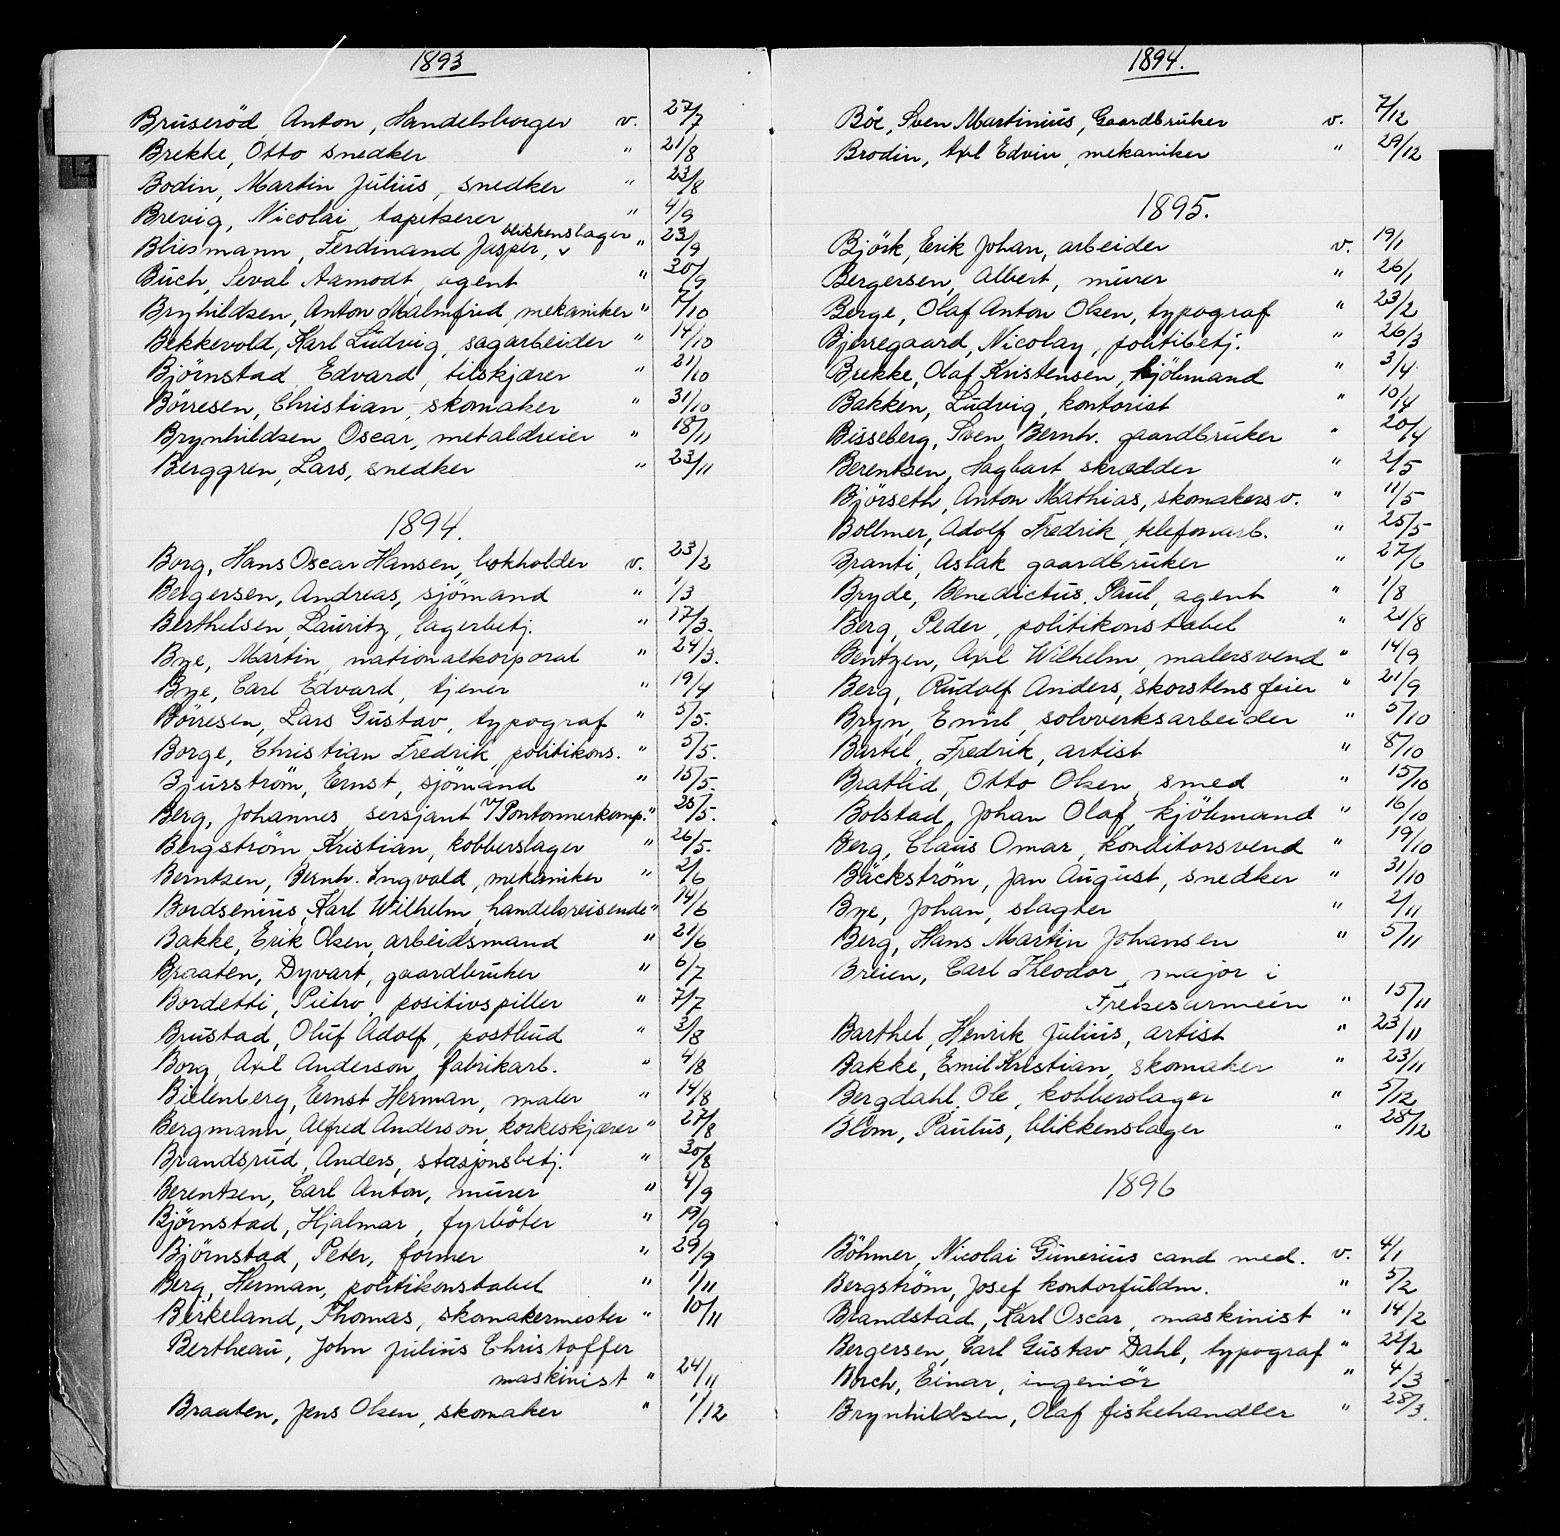 1893
Bruseröd, Anton, Handelsborger v. 27/7
Brekke, Otto snedker " 21/8
Bodin, Martin Julius, snedker " 23/8
Brevig, Nicolai tapetserer " 4/9
blikkenslager
Bliesmann, Ferdinand Jasper, v " 23/9
Buch, Seval Aamodt, agent " 30/9
Brynhildsen, Anton Malmfred, mekaniker " 7/10
Bekkevold, Karl Ludvig, sagarbeider " 14/10
Björnstad Edvard, tilskjærer " 21/10
Börresen, Christian, skomaker " 31/10
Brynhildsen, Oscar, metaldreier " 18/11
Berggren, Lars, snedker " 23/11
1894.
Borg, Hans Oscar Hansen, bokholder v. 23/2
Bergersen, Andreas, sjömand " 1/3
Berthelsen, Lauritz, lagerbetj. " 17/3.
Bye, Martin, nationalkorporal " 24/3.
Bye, Carl Edvard, tjener " 19/4
Börresen, Lars Gustav, typograf " 5/5.
Borge, Christian Fredrik, politikons. " 5/5.
Bjurström, Ernst, sjömand " 15/5.
Berg, Johannes, sersjant v/Pontonnerkomp. " 25/5.
Bergström, Kristian, kobberslager " 26/5.
Berntsen, Bernh. Ingvald, mekaniker " 2/6
Bordsenius, Karl Wilhelm, handelsreisende " 14/6
Bakke, Erik Olsen, arbeidsmand " 21/6
Braaten, Dyvart, gaardbruker " 6/7
Bordetti, Pietro, positivspiller " 7/7
Brustad, Oluf Adolf, postbud " 3/8
Borg, Axel Anderson, fabrikarb. " 4/8
Bielenberg, Ernst Herman, maler " 14/8
Bergmann, Alfred Anderson, korkeskjærer " 27/8
Brandsrud, Anders, stasjonsbetj. " 30/8
Berentsen, Carl Anton, murer " 4/9
Björnstad, Hjalmar, fyrböter " 19/9
Björnstad, Peter, former " 29/9
Berg, Herman, politikonstabel " 1/11
Birkeland, Thomas, skomakermester " 10/11
Bertheau, John Julius Christoffer
maskinist " 24/11
Braaten, Jens Olsen, skomaker " 1/12
1894.
Böe, Sven Martinius, Gaardbruker v. 7/12
Brodin, Axl Edvin, mekaniker " 29/12
1895.
Björk, Erik Johan, arbeider v. 19/1
Bergersen, Albert, murer " 26/1
Berge, Olaf Anton Olsen, typograf " 23/2
Bjerregaard, Nicolay, politibetj. " 26/3
Brekke, Olaf Kristensen, kjöbmand " 3/4.
Bakken, Ludvig, kontorist " 10/4
Bisseberg, Sven, Bernh. gaardbruker " 20/4
Berentsen, Hagbart skrædder " 2/5
Björseth, Anton Mathias, skomakersv. " 11/5
Bollmer, Adolf Fredrik, telefonarb. " 25/5
Branti, Aslak gaardbruker " 27/6
Bryde, Benedictus. Paul, agent " 1/8
Berg, Peder, politikonstabel " 21/8
Bentzen, Axel Wilhelm, malersvend " 14/9
Berg, Rudolf Anders, skorstensfeier " 21/9
Bryn, Emil, solvverksarbeider " 5/10
Bartel, Fredrik, artist " 8/10
Bratlid, Otto Olsen, smed " 15/10
Bolstad, Johan Olaf, kjöbmand " 16/10
Berg, Claus Omar, konditorsvend " 19/10
Bäckström, Jan August, snedker " 31/10
Bye, Johan, slagter " 2/11
Berg, Hans Martin Johansen " 5/11
Breien, Carl Theodor, major i
Frelsesarmeen " 15/11
Barthel, Henrik Julius, artist " 23/11
Bakke, Emil Kristian, skomaker " 23/11
Bergdahl, Ole, kobberslager " 5/12
Blom, Paulus, blikkenslager " 28/12
1896
Böhmer, Nicolai Gunerius cand med. v. 4/1
Bergström, Josef kontorfuldm. " 5/2
Brandstad, Karl Oscar, maskinist " 14/2
Bergersen, Carl Gustav Dahl, typograf " 22/2
Borch, Einar, ingeniör " 4/3
Brynhildsen, Olaf fiskehandler " 28/3.